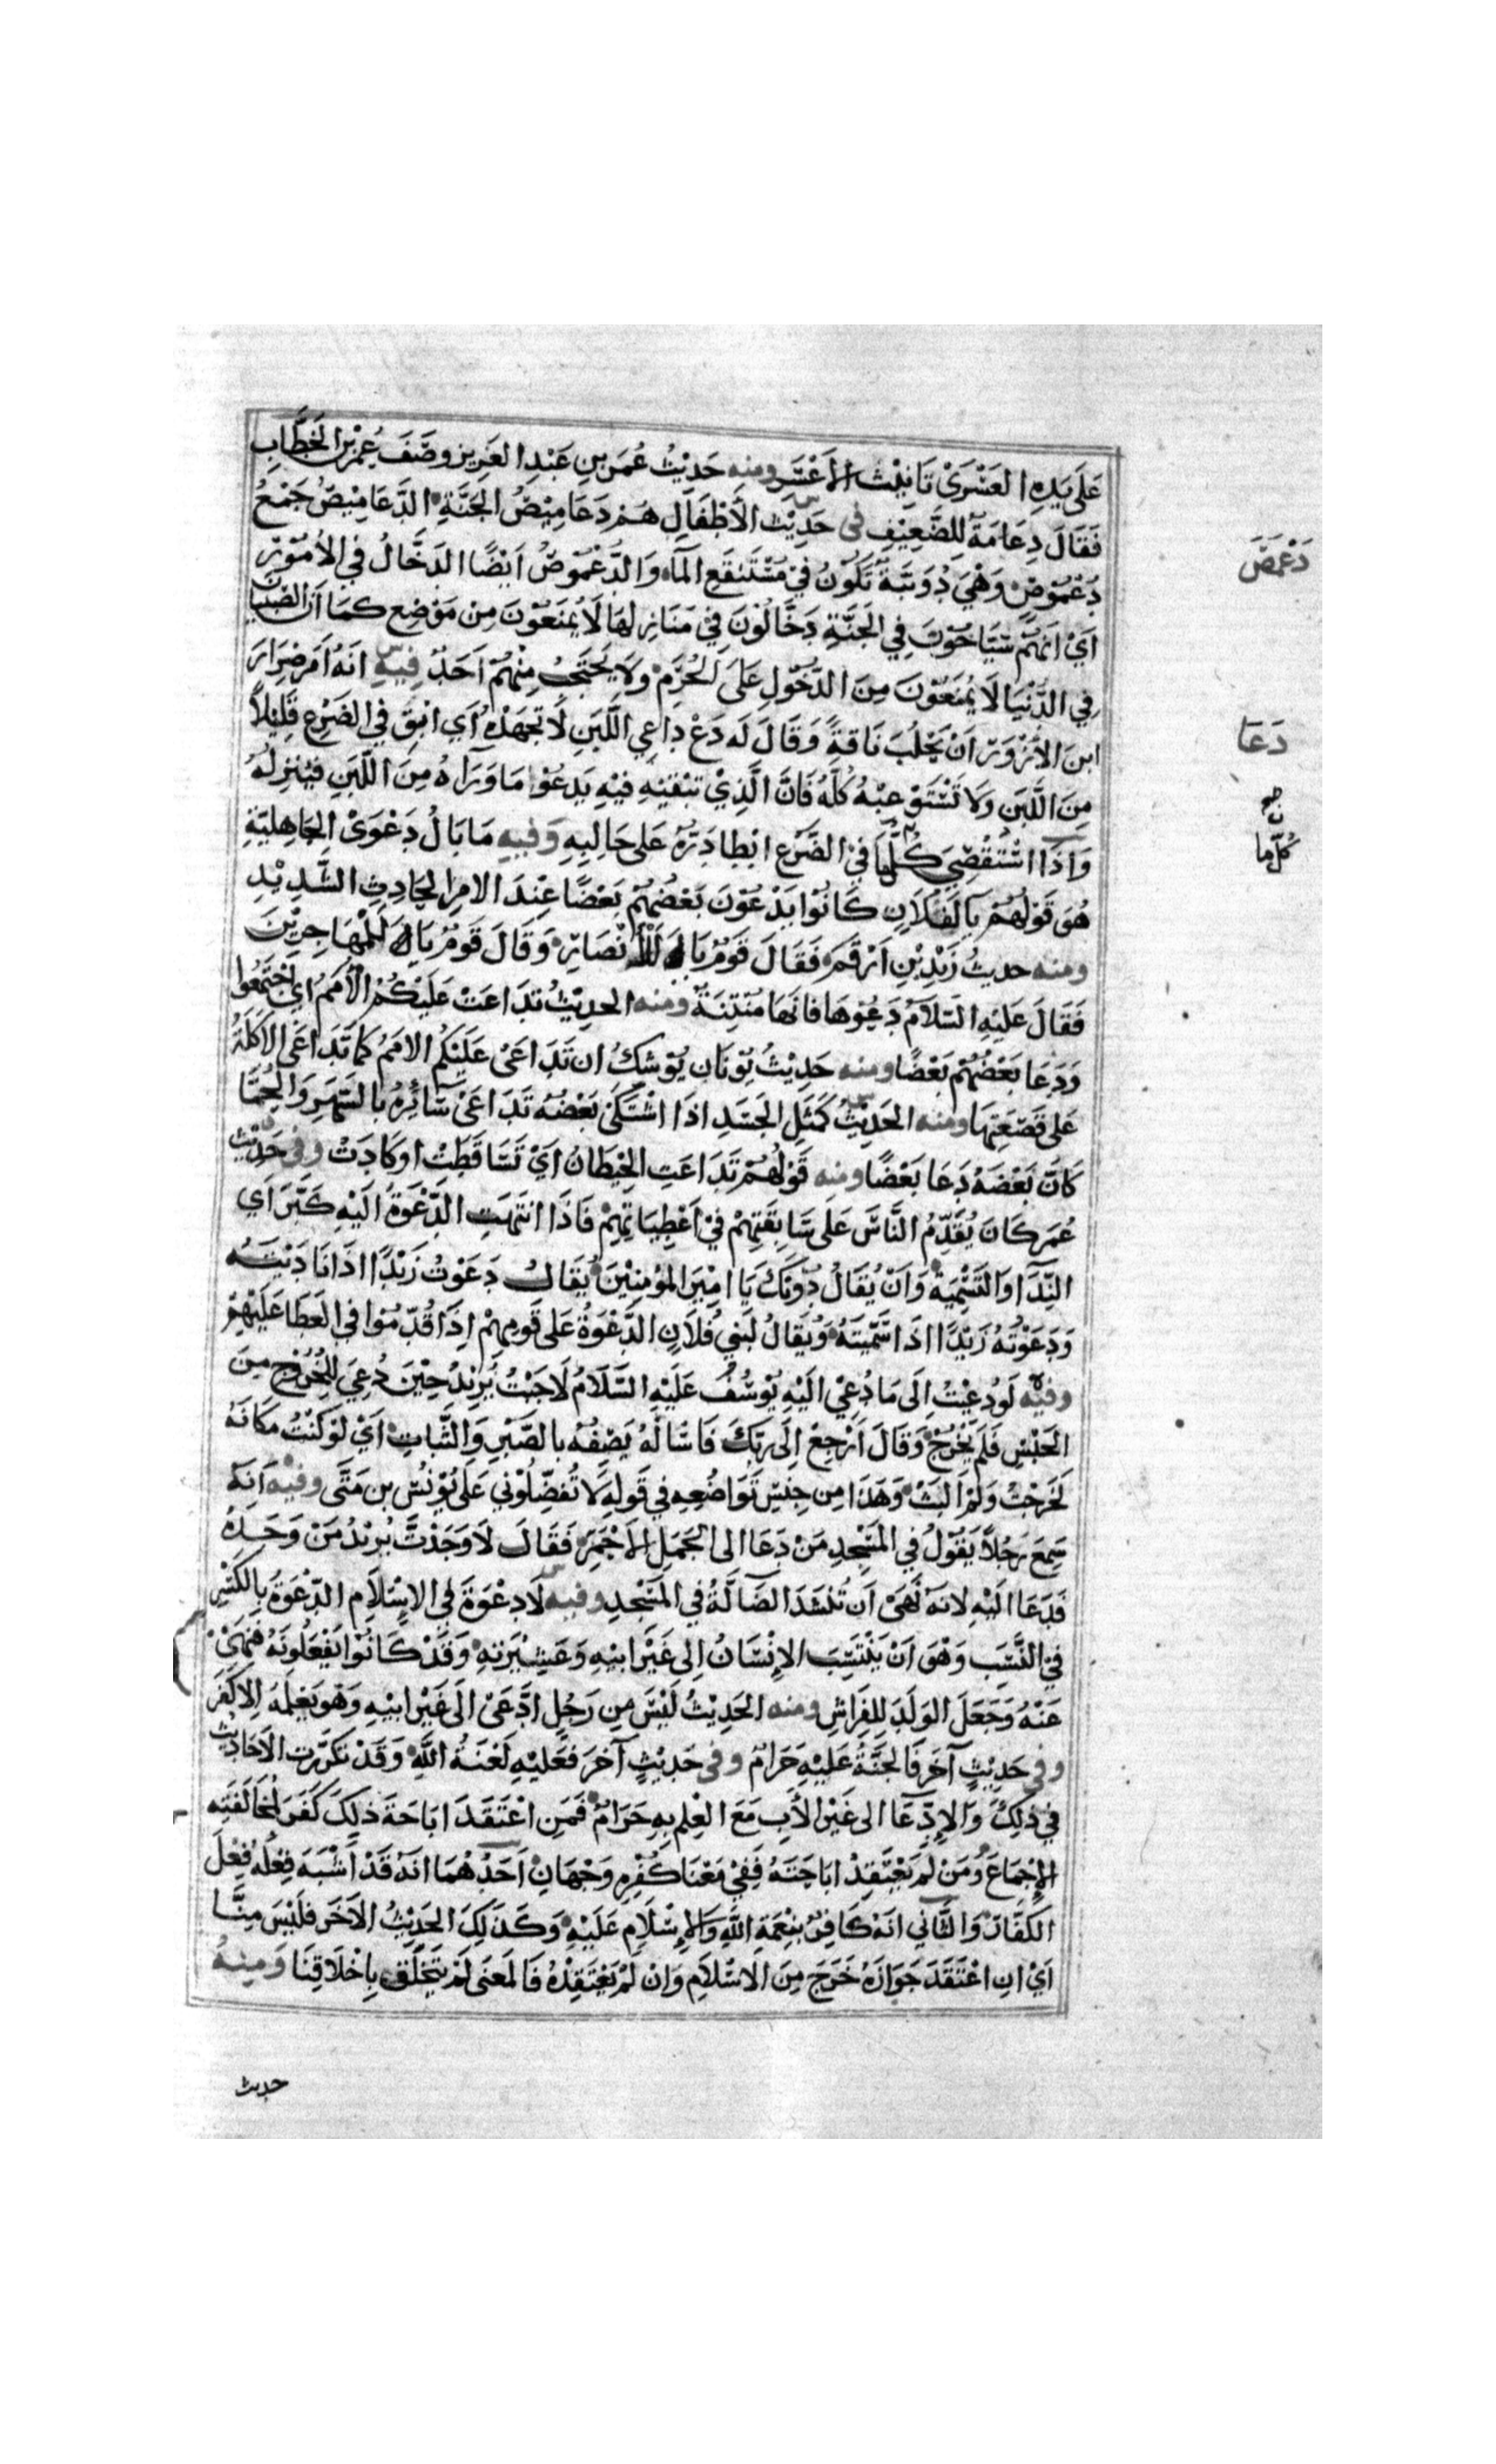 عَلَى يَدِهِ العَسْرَى تَانِيْث الأَعْسَر ومنه حَدِيْثُ عُمَرَ بنِ عَبْدِ العَزِيز وصَفَ عُمَر بن الخَطَّابِ
فَقَالَ دِعَامَةٌ لِلضَّعِيْفِ فى حَدِيْث الأَطْفَالِ هُمْ دَعَامِيْصُ الجَنَّةِ الدَّعَامِيْصُ جَمْعُ
دُعْمُوْصٍ وَهْيَ دُوَيْبَّةٌ تَكُوْنُ فِيْ مُسْتَنْقَعِ المَآء وَالدُّعْمُوْصُ اَيْضًا الدَخَّالُ فى الأُمُوْرِ
اَيْ اَنَّهُمْ سَيَّاحُوْنَ فِي الجَنَّةِ دَخَّالُوْنَ فِيْ مَنَازِلِهَا لَا يُمْنَعُوْنَ مِنْ مَوْضِعٍ كمَا اَنَّ الصِّبْيَانَ
فِي الدُّنْيَا لَا يُمْنَعُوْنَ مِنَ الدُّخُوْلِ عَلَى الحُرَمِ وَلَا يَحْتَجِبُ مِنْهُمْ اَحَدٌ فِيْهِ اَنَّهُ اَمَرَ ضِرَارَ
ابنَ الأَزْوَرِ اَنْ يَحْلُبَ نَاقَةً وَقَالَ لَه دَعْ دَاعِي اللَّبَنِ لَا تُجْهِدْهُ اَي اَبْقِ فِي الضَرْعِ قَلِيْلًا
مِنَ اللَّبَنِ وَلَا تَسْتَوْعِبْهُ كُلَّهُ فَاِنَّ الَّذِيْ تُبْقِيْهِ فِيْهِ يَدعُوْا مَا وَرَاهُ مِنَ اللَّبَنِ فَيُنْزِلُهُ
وَاِذَا اسْتُقْصِيَ كُلَّمَا فِيْ الضَّرْعِ ابْطَا دَرُّهُ عَلَى حَالِبِهِ وَفيهِ مَا بَالُ دَعْوَى الجَاهِلِيَّةِ
هُوَ قَوْلُهُمْ يَا لَفُلَانٍ كَانُوْا يَدْعُوْنَ بَعْضُهُمْ بَعْضًا عِنْدَ الامرِ الحَادِثِ الشَّدِيْدِ
ومنه حديثُ زَيْدِ بْنِ اَرْقَمَ فَقَالَ قَوْمٌ يَا لَلأَنْصَارِ وَقَالَ قَوْمٌ يَا لَلْمُهَاجِرِيْنَ
فَقَالَ عَلَيْهِ السَّلَامُ دَعُوْهَا فَاِنَّهَا مُنْتِنَةٌ ومنه الحدِيْثُ تَدَاعَتْ عَلَيْكُمْ الأُمَمُ اي اجْتَمَعُوا
وَدَعَا بَعْضُهُمْ بَعْضًا ومنه حَدِيْثُ ثَوْبَان يُوْشكُ ان تَدَاعَى عَلَيْكُم الامَمُ كمَا تَدَاعَى الأَكَلَةُ
عَلَى قَصْعَتِهَا ومنه الحَدِيْثُ كَمَثَلِ الجَسَدِ اِذَا اشْتَكَى بَعْضُهُ تَدَاعَى سَائِرُهُ بِالسَّهَرِ وَالحُمَّا
كَانَ بَعْضَهُ دَعَا بَعْضًا ومنه قَوْلُهُمْ تَدَاعَتِ الحِيْطَانُ اَيْ تَسَاقَطَتْ اوكَادَتْ وفى حَدِيْث
عُمَرَ كَانَ يُقَدِّمُ النَّاسَ عَلَى سَابِقَتِهِمْ فِيْ اَعْطِيَاتِهِمْ فَاِذَا انتَهَتِ الدَّعْوَةُ اِلَيْهِ كَبَّرَ اَي
النِّدَا وَالتَسْمِيَةُ وَاَنْ يُقَالُ دُوْنَكَ يَا امِيْرَ المؤمِنِيْنَ يُقَالُ دَعَوْتُ زَيْدًا اِذَا نَادَيْتَهُ
وَدَعَوْتُهُ زَيْدًا اِذَا سَمَّيْتَهُ وَيُقَالُ لَبَنِي فُلَانٍ الدَّعْوَةُ عَلَى قَومِهِمْ اِذَا قُدِّمُوا فى العَطَا عَلَيْهِمْ
وفيه لَو دُعِيْتُ اِلَى مَا دُعِيَ اِلَيْهِ يُوْسُفُ عَلَيْهِ السَّلَامُ لَاَجَبْتُ يُرِيْدُ حِيْنَ دُعِيَ لِلخُرُوْجِ مِنَ
الحَبْسِ فَلَمْ يَخْرُجْ وَقَالَ اَرْجِعْ اِلَى رَبِّكَ فَاسْاَلْهُ يَصِفُهُ بِالصَّبْرِ وَالثَّبَاتِ اَيْ لَوْ كُنْتُ مَكَانَهُ
لَخَرَجْتُ وَلَمْ اَلْبَثْ وَهَذَا مِن جِنْسِ تَوَاضُعِهِ فِي قَولِهِ لَا تُفَضِّلُوْنِي عَلَى يُوْنُسَ بن مَتَّى وفيْه اَنَّهُ
سَمِعَ رَجُلًا يَقُوْلُ فِي المَسْجِدِ مَنْ دَعَا الى الجَمَلِ الأَحْمَرِ فَقَالَ لَا وَجَدْتَّ يُرِيْدُ مَنْ وَجَدَهُ
فَدَعَا اِلَيْهِ لِانَّهُ نَهَى اَن تُنْشَدَ الضَالَّةُ فِي المَسْجِدِ وفيه لَا دِعْوَةَ فِي الاِسْلَامِ الدِّعْوَةُ بِالكَسْرِ
فِيْ النَّسَبِ وَهْوَ اَنْ يَنْتَسِبَ الاِنْسَانُ اِلى غَيْرِ ابِيْهِ وَعَشِيْرَتِهِ وَقَدْ كَانُوْا يَفْعَلُونَهُ فَنَهَى
عَنْهُ وَجَعَلَ الوَلَدَ لِلفِرَاشِ ومنه الحَدِيْثُ لَيْسَ مِن رَجُلٍ ادَّعَى اِلَى غَيْرِ ابِيْهِ وَهُوَ يَعْلَمُهُ اِلا كَفَرَ
وفى حَدِيْثٍ آخَرَ فَالجَنَّةُ عَلَيْهِ حَرَامٌ وفى حَدِيْثٍ آخَرَ فَعَلَيْهِ لَعْنَةُ اللَّهِ وَقَدْ تكَرَّرت الاَحَادِيْثُ
فِي ذَلِكَ وَالاِدِّعَا الى غَيْرِ الأَبِ مَعَ العِلمِ بِهِ حَرَامٌ فَمَنِ اعْتَقَدَ ابَاحَةَ ذلِكَ كَفَرَ لِمُخَالَفَتِهِ
الإِجْمَاعَ وَمَن لَم يَعْتَقِدْ ابَاحَتَهُ فَفِيْ مَعْنَا كُفْرِهِ وَجْهَانِ اَحَدُهُمَا اَنَّهُ قَدْ اَشْبَهَ فِعْلُهُ فِعْلَ
الكُفَّارِ وَالثَّانِي انَّهُ كَافِرٌ بِنِعْمَةِ اللَّهِ وَالإِسْلَامِ عَلَيْهِ وَكَذَلِكَ الحَدِيْثُ الآخَر فَلَيْسَ مِنَّا
اَيْ انِ اعْتَقَدَ جَوَازَهُ خَرَجَ مِنَ الاسْلَامِ وَاِنْ لَمْ يَعْتَقِدْهُ فَالمَعنَى لَمْ يَتَخَلَّقْ بِاَخْلَاقِنَا وَمِنْهُ
حديث
دَعْمَصَ
دَعَا
كُلّ ما